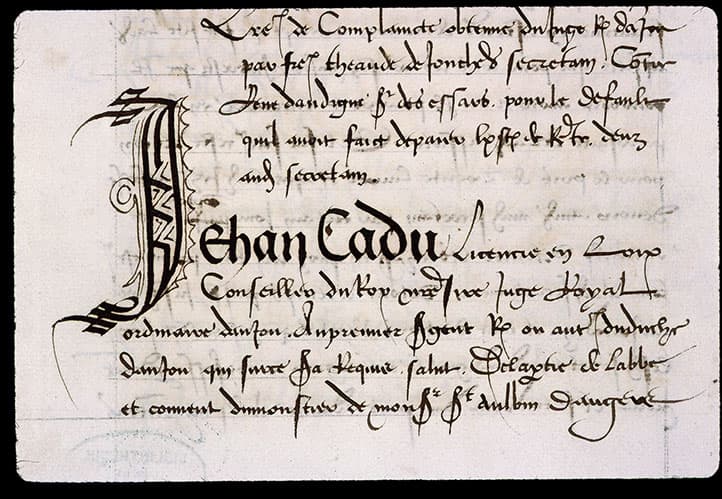 Lres de Complaincte obtenue du Juge R danjou
par fre theaude de secretain. Contre
Rene dandigne Sr des essars. pour le deffault
quil auoit faict de paier de Rte. deuz
aud secretain
Jehan Cadu Licencie en Loix
Conseiller du Roy nre Sire Juge Royal
ordinaire danjou. Au premier Sgent R ou autre du duche
danjou qui sur ce sa Requis. salut. De la ptie de labbe
et conuent du monstier de monSr St aulbin dangers